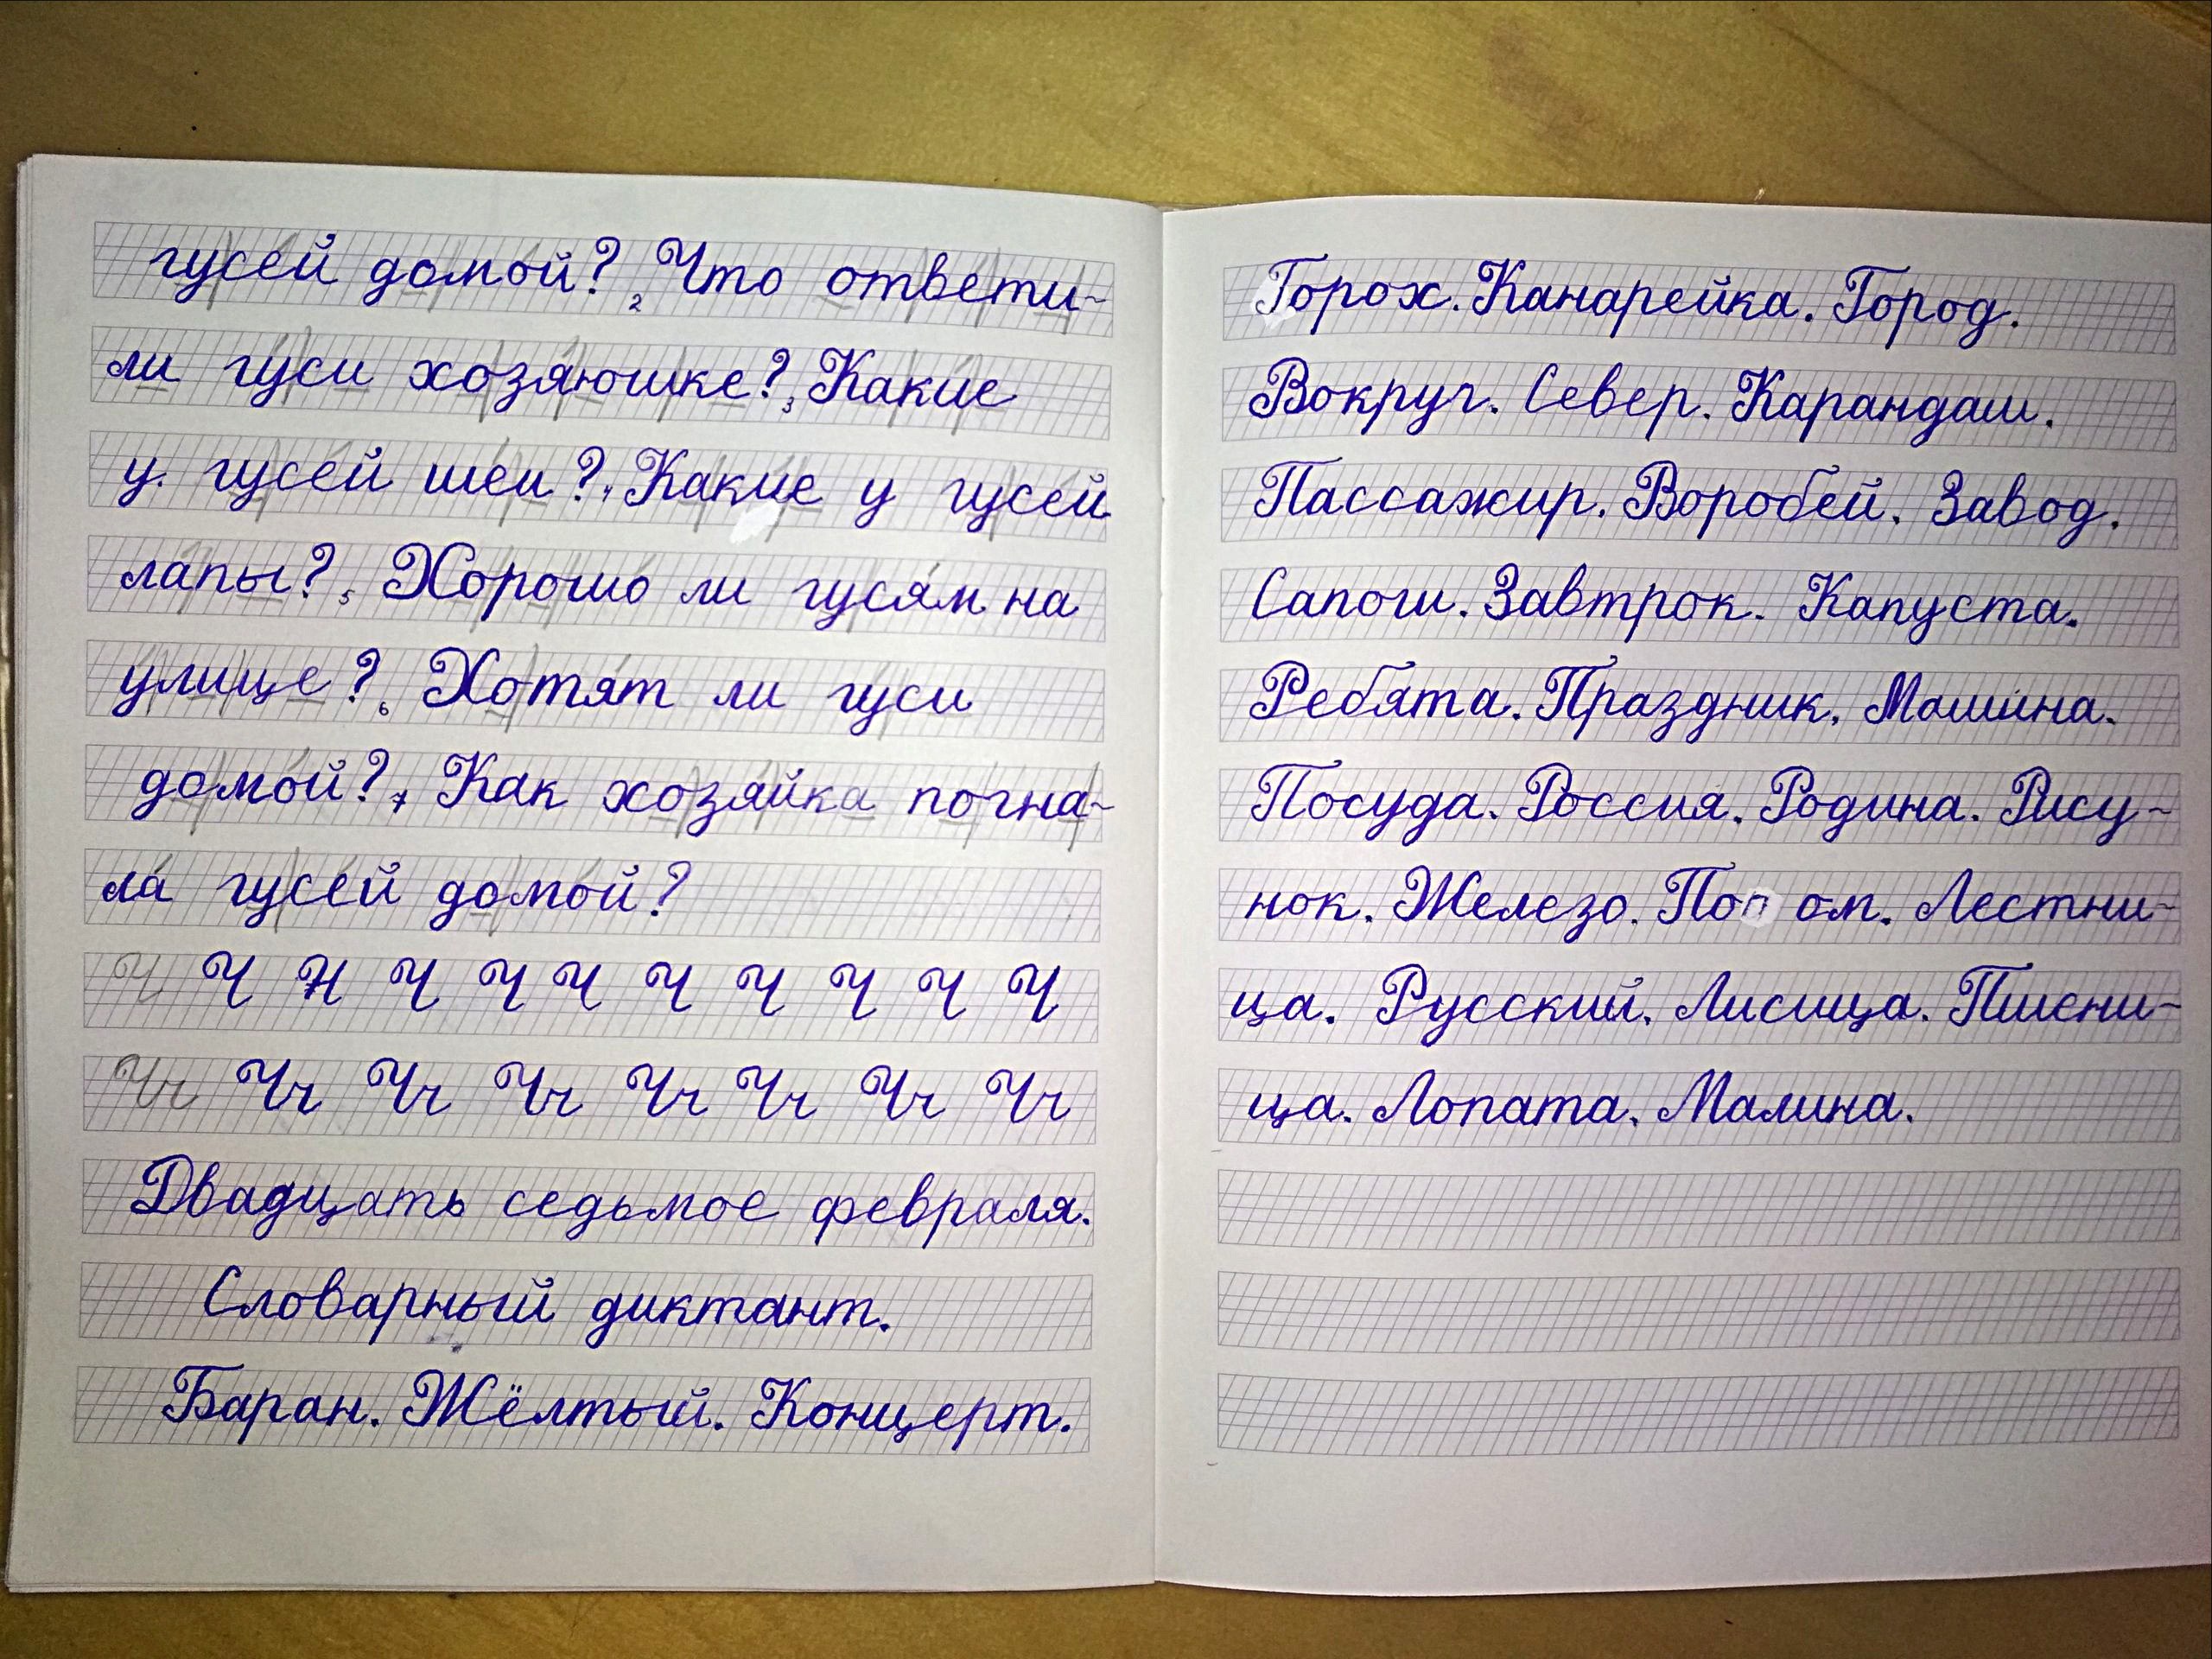 гусей домой? 2 Что ответи-
ли гуси хозяюшке? 3 Какие
у гусей шеи? 4 Какие у гусей
лапы? 5 Хорошо ли гусям на
улице? 6 Хотят ли гуси
домой? 7 Как хозяйка погна-
ла гусей домой?
Ч Ч Ч Ч Ч Ч Ч Ч Ч Ч Ч
Чч Чч Чч Чч Чч Чч Чч Чч
Двадцать седьмое февраля.
Словарный диктант.
Баран. Жёлтый. Концерт.
Горох. Канарейка. Город.
Вокруг. Север. Карандаш.
Пассажир. Воробей. Завод.
Сапоги. Завтрок. Капуста.
Ребята. Праздник. Машина.
Посуда. Россия. Родина. Рису-
нок. Железо. Лестни-
ца. Русский. Лисица. Пшени-
ца. Лопата. Малина.